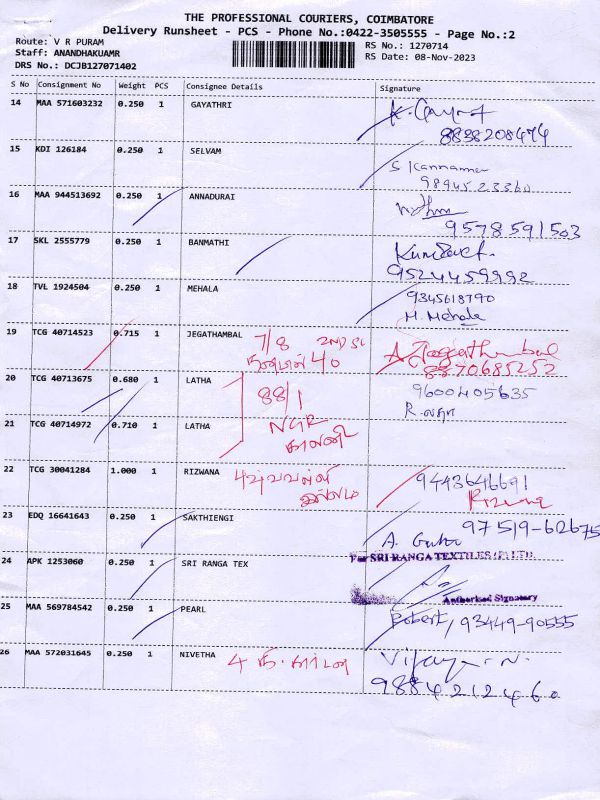 THE PROFESSIONAL COURIERS, COIMBATORE
Delivery Runsheet - PCS - Phone No.:0422-3505555 - Page No.:2
Route: V R PURAM
RS No.: 1270714
Staff: ANANDHAKUAMR
RS Date: 08-Nov-2023
DRS No.: DCJB127071402
S No Consignment No Weight PCS Consignee Details Signature
14 MAA 571603232 0.250 1 GAYATHRI
8838208474
15 KDI 126184 0.250 1 SELVAM
S Kannamma
98945 23360
16 MAA 944513692 0.250 1 ANNADURAI
9578591503
17 SKL 2555779 0.250 1 BANMATHI
9524459992
18 TVL 1924504 0.250 1 MEHALA
9345618790
M. Mehala
19 TCG 40714523 0.715 1 JEGATHAMBAL 7/8 2ND St
40
A. Jegathambal
8870685252
20 TCG 40713675 0.680 1 LATHA
88/1
9600405635
R. லதா
21 TCG 40714972 0.710 1 LATHA
NGR
காலனி
22 TCG 30041284 1.000 1 RIZWANA
இல்லம்
9443646691
Rizwana
23 EDQ 16641643 0.250 1 SAKTHIENGI
97519-62675
A.
24 APK 1253060 0.250 1 SRI RANGA TEX
For SRI RANGA TEXTILES (P) LTD.
Authorised Signatory
25 MAA 569784542 0.250 1 PEARL
Robert, 93449-90555
26 MAA 572031645 0.250 1 NIVETHA
Vijaya. N.
9884212460